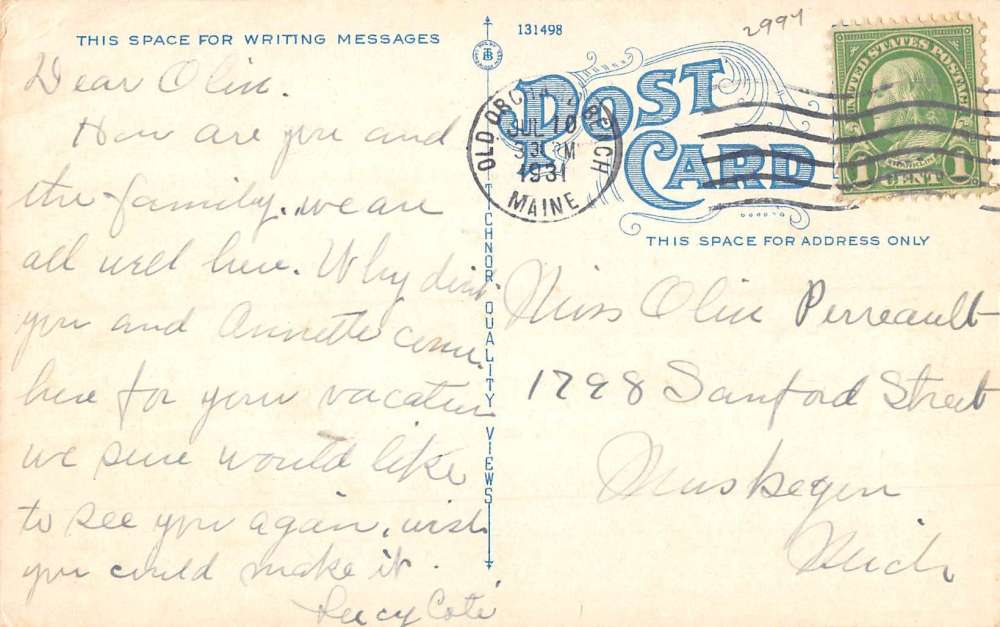 THIS SPACE FOR WRITING MESSAGES
Dear Olin.
How are you and
the family. we are
all well here. Why dint
you and Annette come
here for your vacation
we sure would like
to see you again. wish
you could make it.
Lucy Coté
131498
TICHNOR QUALITY VIEWS
2997
POST CARD
OLD ORCHARD BEACH
JUL 10
3 PM
1931
MAINE
UNITED STATES POSTAGE
FRANKLIN
1 CENT 1
THIS SPACE FOR ADDRESS ONLY
Miss Olin Perreault
1798 Sanford Street
Muskegon
Mich